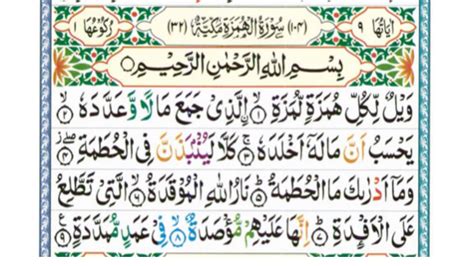 اٰیَاتُهَا ۹ (۱۰۴) سُوْرَةُ الْهُمَزَةِ مَكِّیَّةٌ (۳۲) رُكُوْعُهَا ۱
بِسْمِ اللّٰهِ الرَّحْمٰنِ الرَّحِیْمِ ○
وَیْلٌ لِّكُلِّ هُمَزَةٍ لُّمَزَةِ ۙ﴿۱﴾ اِ۟لَّذِیْ جَمَعَ مَالًا وَّ عَدَّدَهٗ ۙ﴿۲﴾
یَحْسَبُ اَنَّ مَالَهٗۤ اَخْلَدَهٗ ۚ﴿۳﴾ كَلَّا لَیُنْۢبَذَنَّ فِی الْحُطَمَةِ ۖ﴿۴﴾
وَ مَاۤ اَدْرٰىكَ مَا الْحُطَمَةُ ؕ﴿۵﴾ نَارُ اللّٰهِ الْمُوْقَدَةُ ۙ﴿۶﴾ الَّتِیْ تَطَّلِعُ
عَلَی الْاَفْـِٕدَةِ ؕ﴿۷﴾ اِنَّهَا عَلَیْهِمْ مُّؤْصَدَةٌ ۙ﴿۸﴾ فِیْ عَمَدٍ مُّمَدَّدَةٍ ﴿۹﴾